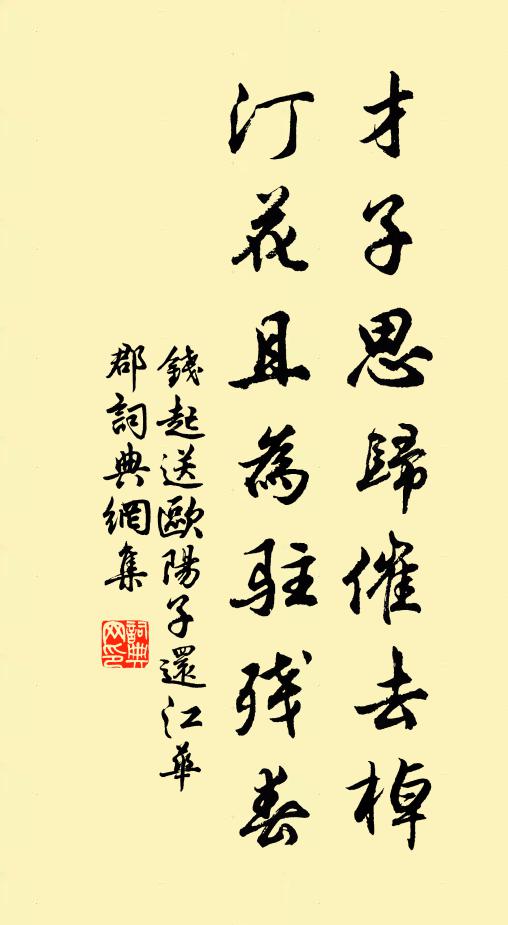 才子思歸催去棹
汀花且為駐殘春
錢起送歐陽子還江華
郡詞典網集
詞典网印